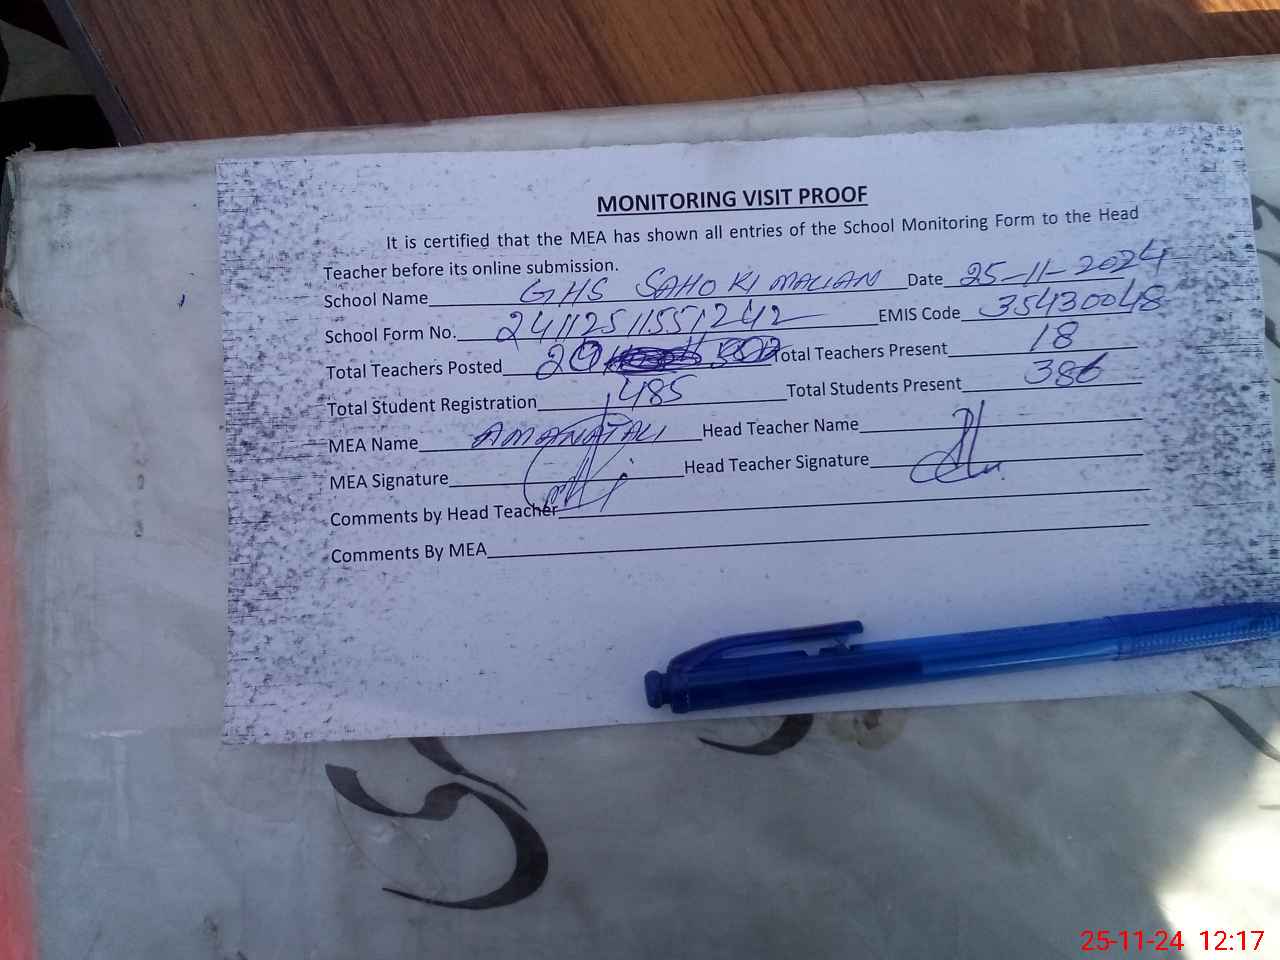 MONITORING VISIT PROOF
It is certified that the MEA has shown all entries of the School Monitoring Form to the Head
Teacher before its online submission.
School Name GHS SAHO KI MALIAN Date 25-11-2024
School Form No. 241125115551242 EMIS Code 35430048
Total Teachers Posted 20 Total Teachers Present 18
Total Student Registration 485 Total Students Present 386
MEA Name AMANAT ALI Head Teacher Name
MEA Signature Head Teacher Signature
Comments by Head Teacher
Comments By MEA
25-11-24 12:17